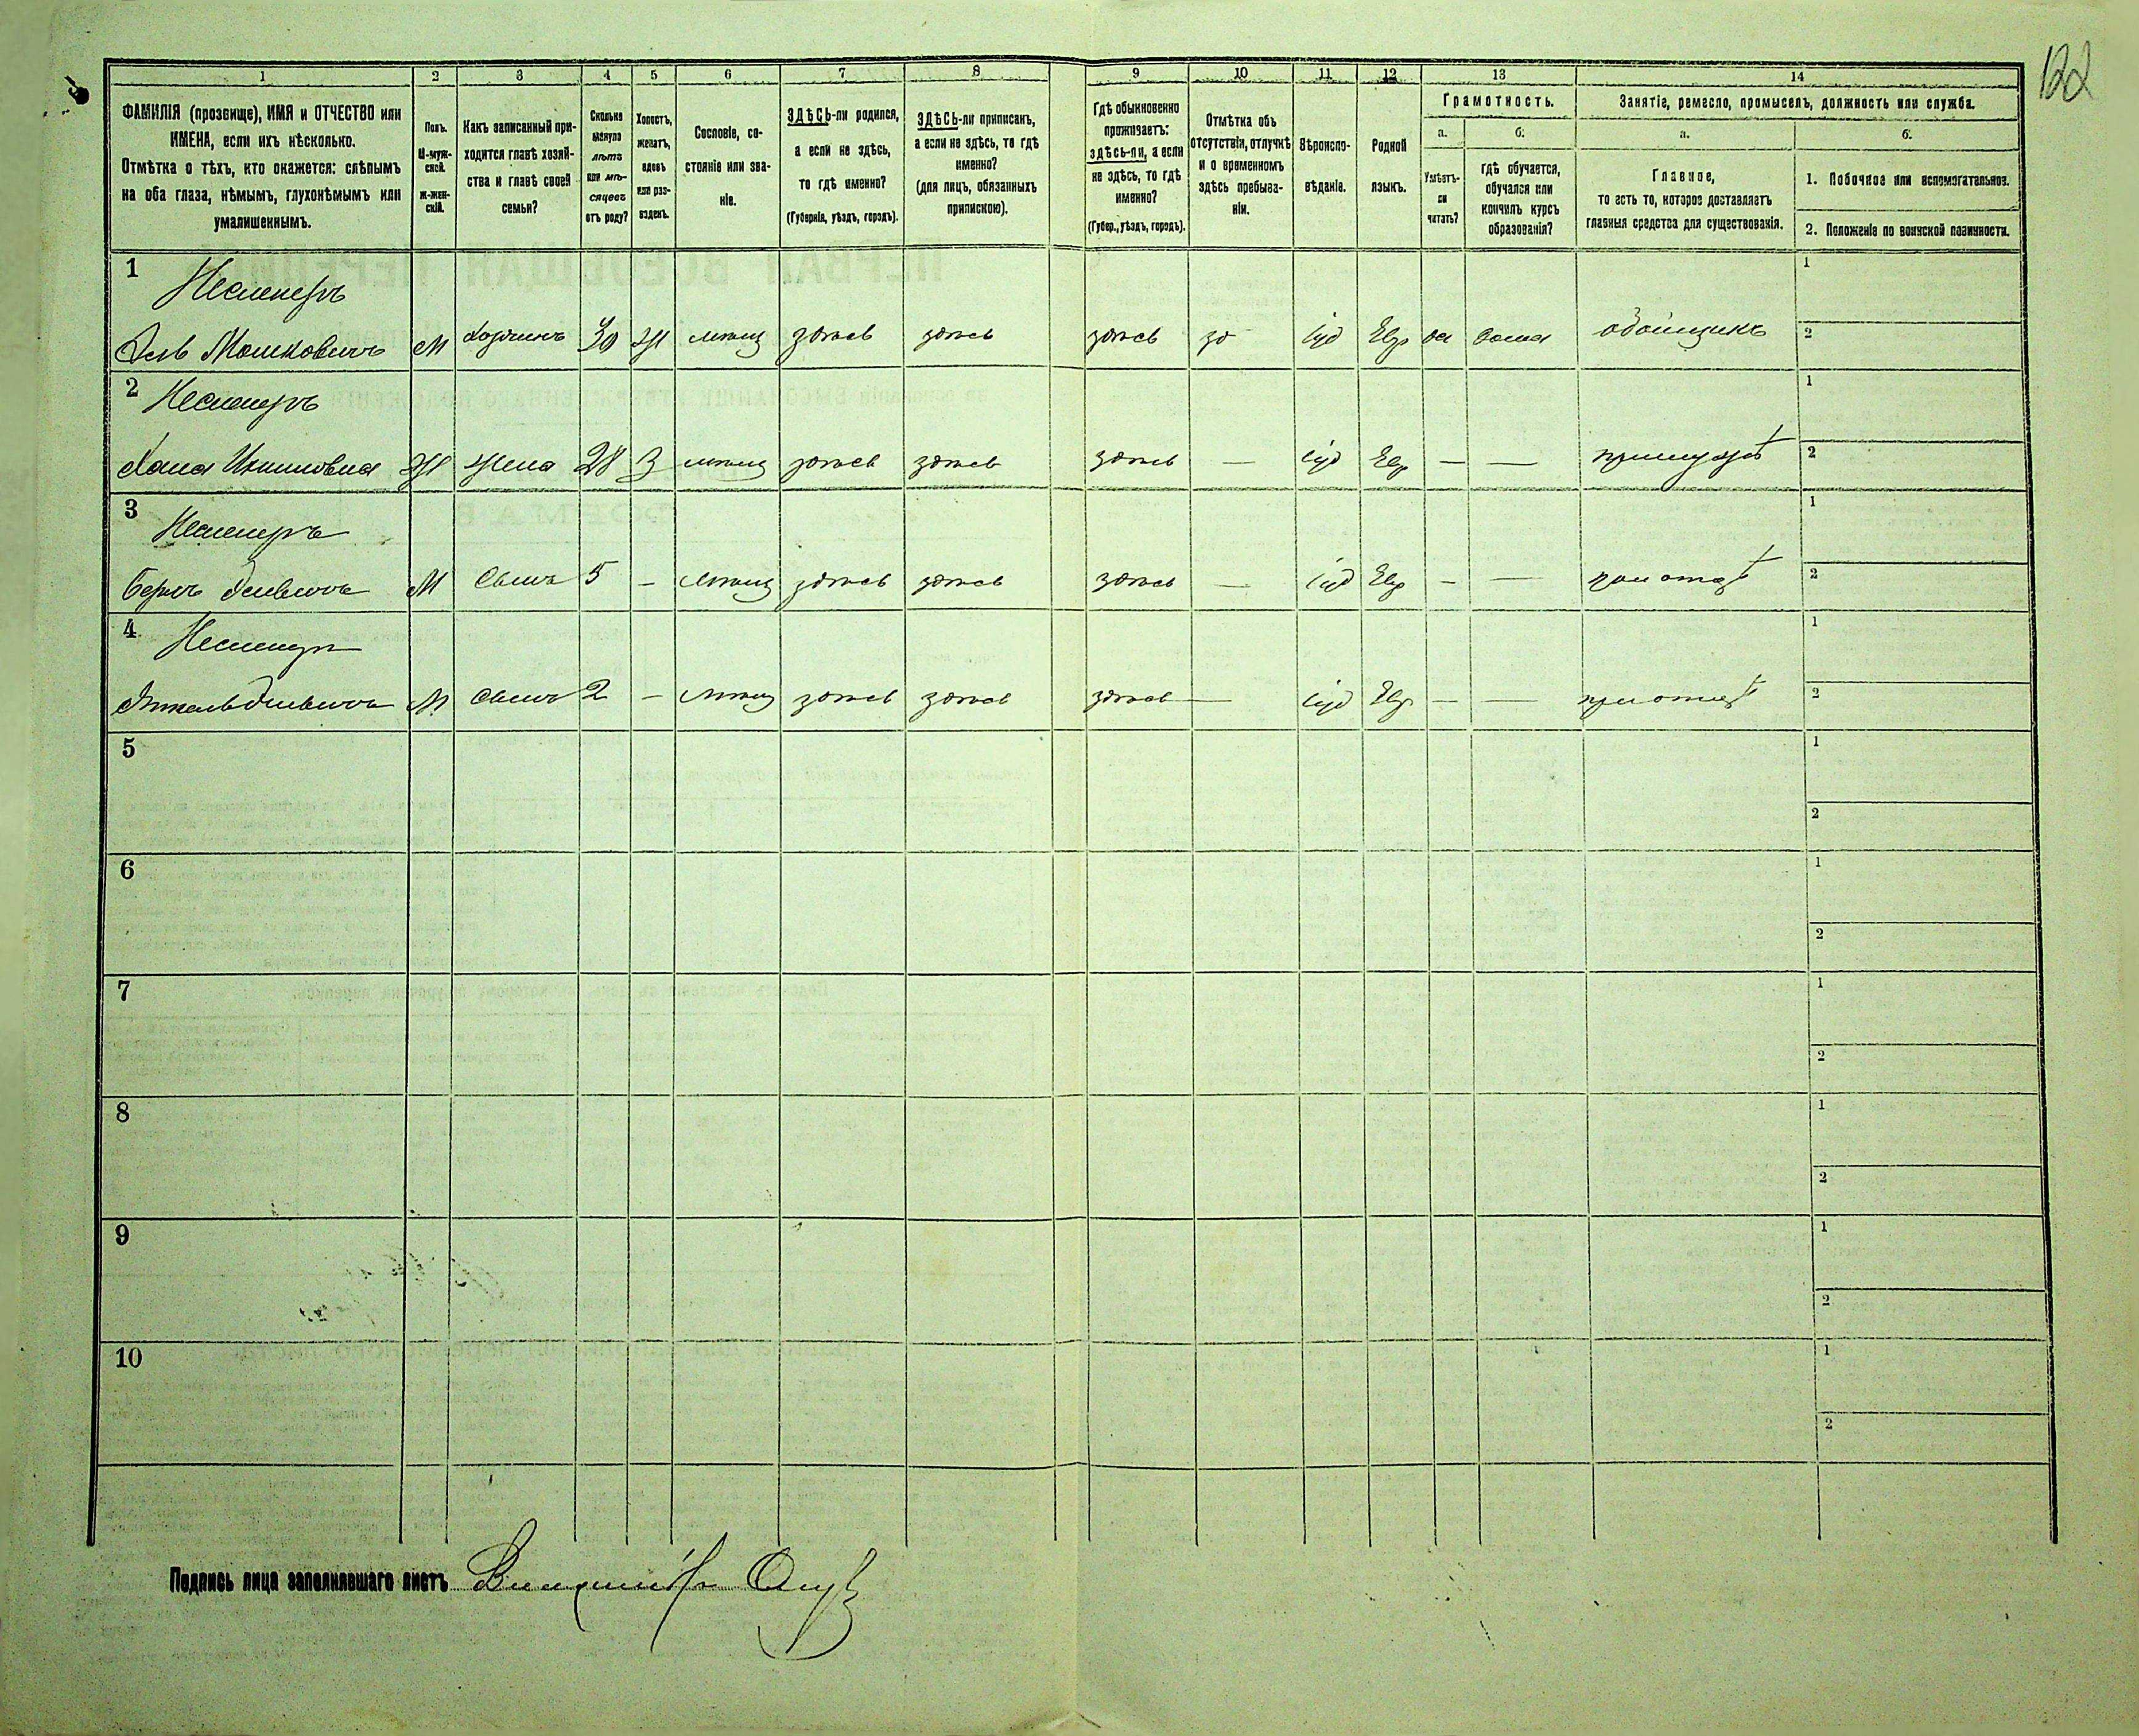 122
1 2 3 4 5 6 7 8 9 10 11 12 13 14
ФАМИЛІЯ (прозвище), ИМЯ и ОТЧЕСТВО или
ИМЕНА, если ихъ нѣсколько.
Отмѣтка о тѣхъ, кто окажется: слѣпымъ
на оба глаза, нѣмымъ, глухонѣмымъ или
умалишеннымъ.
Полъ.
М-муж-
ской.
Ж-жен-
скій.
Какъ записанный при-
ходится главѣ хозяй-
ства и главѣ своей
семьи?
Сколько
минуло
лѣтъ
или мѣ-
сяцевъ
отъ роду?
Холостъ,
женатъ,
вдовъ
или раз-
веденъ.
Сословіе, со-
стояніе или зва-
ніе.
ЗДѢСЬ-ли родился,
а если не здѣсь,
то гдѣ именно?
(Губернія, уѣздъ, городъ).
ЗДѢСЬ-ли приписанъ,
а если не здѣсь, то гдѣ
именно?
(для лицъ, обязанныхъ
припискою).
Гдѣ обыкновенно
проживаетъ:
здѣсь-ли, а если
не здѣсь, то гдѣ
именно?
(Губер., уѣздъ, городъ).
Отмѣтка объ
отсутствіи, отлучкѣ
и о временномъ
здѣсь пребыва-
ніи.
Вѣроиспо-
вѣданіе.
Родной
языкъ.
Грамотность.
а.
б.
Умѣетъ-
ли
читать?
гдѣ обучается,
обучался или
кончилъ курсъ
образованія?
Занятіе, ремесло, промыселъ, должность или служба.
а.
б.
Главное,
то есть то, которое доставляетъ
главныя средства для существованія.
1. Побочное или вспомогательное.
2. Положеніе по воинской повинности.
1
1
Мошковичъ М Хозяинъ 30 Ж мѣщ здѣсь здѣсь здѣсь зд іуд Евр да дома обойщикъ
2
2
1
Хана М Ж жена 28 З мѣщ здѣсь здѣсь здѣсь — іуд Евр — — при мужѣ
2
3
1
Беръ М Сынъ 5 – мѣщ здѣсь здѣсь здѣсь — іуд Евр – — при отцѣ
2
4
1
М Сынъ 2 – мѣщ здѣсь здѣсь здѣсь — іуд Евр — — при отцѣ
2
5
1
2
6
1
2
7
1
2
8
1
2
9
1
2
10
1
2
Подпись лица заполнявшаго листъ